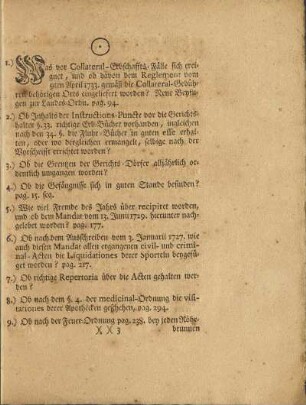 1.) Was vor Collateral-Erbschaffts-Fälle sich ereignet, und ob davon dem Reglement vom
9ten April 1733. gemäß die Collateral-Gebühren behörigen Orts eingeliefert worden? Neue Beyfugen zur Landes-Ordn. pag. 94.
2.) Ob Inhalts der Instructions-Puncte vor die Gerichtshalter §. 33. richtige Erb-Bücher vorhanden, ingleichen
nach den 34. §. die Fluhr-Bücher in guten esse erhalten, oder wo dergleichen ermangele, selbige nach der
Vorschrifft errichtet worden?
3.) Ob die Grentzen der Gerichts-Dörfer alljährlich ordentlich umgangen worden?
4.) Ob die Gefängnisse sich in guten Stande befinden?
pag. 15. sq.
5.) Wie viel Fremde des Jahrs über recipiret worden,
und ob dem Mandat vom 13. Junii 1749. hierunter nachgelebet worden? pag. 177.
6.) Ob nach dem Ausschreiben vom 3. Januarii 1727. wie
auch diesen Mandat allen ergangenen civil- und criminal-Acten die Liquidationes derer Sportuln beygefüget worden? pag. 217.
7.) Ob richtige Repertoria über die Acten gehalten werden?
8.) Ob nach dem §. 4. der medicinal-Ordnung die visitationes derer Apothecken geschehen, pag. 294.
9.) Ob nach der Feuer-Ordnung pag. 238. bey jeden Röhr-
X x 3
brunnen